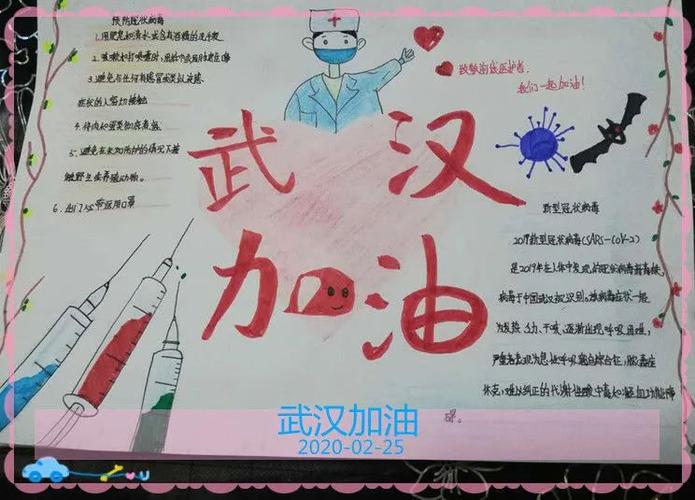 预防冠状病毒
1.用肥皂和清水或含有酒精的洗手液
2.咳嗽和打喷嚏时,用纸巾或用肘捂住口鼻
3.避免与任何有感冒或类似流感
症状的人密切接触
4.将肉和蛋类彻底煮熟
5.避免在未加防护的情况下接
触野生或养殖动物。
6.出门必带医用口罩
致敬前线医护者,
我们一起加油!
武汉
加油
新型冠状病毒
2019新型冠状病毒(SARS-CoV-2)
是2019年在人体中发现的冠状病毒新毒株,
病毒于中国武汉被识别。该病毒症状一般
为发热、乏力、干咳、逐渐出现呼吸困难,
严重者表现为急性呼吸窘迫综合征,脓毒症
休克,难以纠正的代谢性酸中毒和凝血功能障
碍。
武汉加油
2020-02-25
U